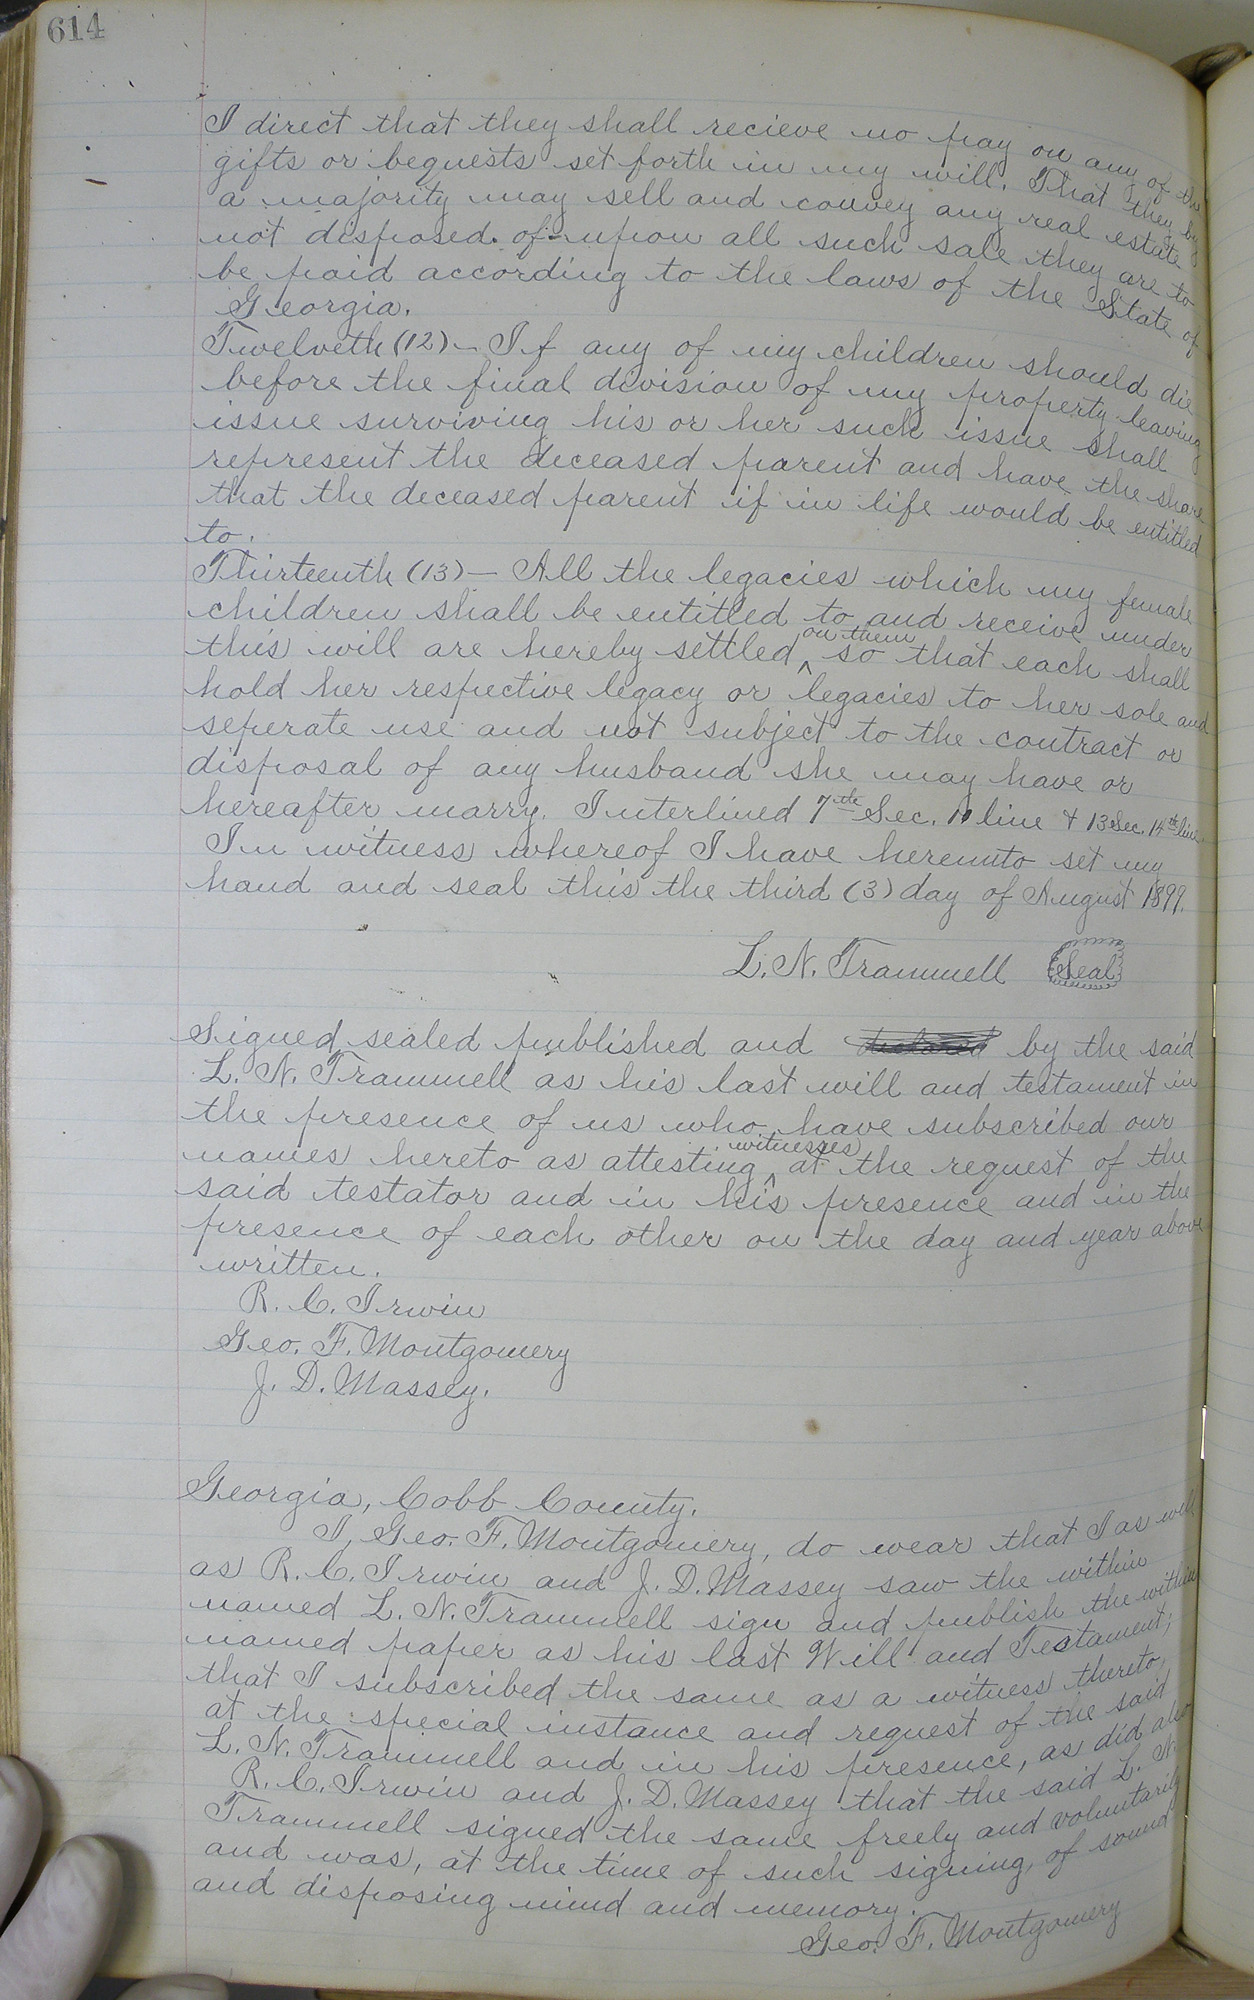 614
I direct that they shall recieve no pay on any of the
gifts or bequests set forth in my will. That they by
a majority may sell and convey any real estate
not disposed of upon all such sale they are to
be paid according to the laws of the State of
Georgia.
Twelveth (12) – If any of my children should die
before the final division of my property leaving
issue surviving his or her such issue shall
represent the deceased parent and have the share
that the deceased parent if in life would be entitled
to.
Thirteenth (13) – All the legacies which my female
children shall be entitled to and receive under
this will are hereby settled ^on them so that each shall
hold her respective legacy or legacies to her sole and
seperate use and not subject to the contract or
disposal of any husband she may have or
hereafter marry. Interlined 7th Sec. 11 line & 13 Sec. 14th line.
In witness whereof I have hereunto set my
hand and seal this the third (3) day of August 1899.
L. N. Trammell Seal
Signed, sealed published and declared by the said
L. N. Trammell as his last will and testament in
the presence of us who have subscribed our
names hereto as attesting ^witnesses at the request of the
said testator and in his presence and in the
presence of each other on the day and year above
written.
R. C. Irwin
Geo. F. Montgomery
J. D. Massey.
Georgia, Cobb County.
I, Geo. F. Montgomery, do wear that I as well
as R. C. Irwin and J. D. Massey saw the within
named L. N. Trammell sign and publish the within
named paper as his last Will and Testament;
that I subscribed the same as a witness thereto,
at the special instance and request of the said
L. N. Trammell and in his presence, as did also
R. C. Irwin and J. D. Massey that the said L. N.
Trammell signed the same freely and voluntarily
and was, at the time of such signing, of sound
and disposing mind and memory.
Geo. F. Montgomery